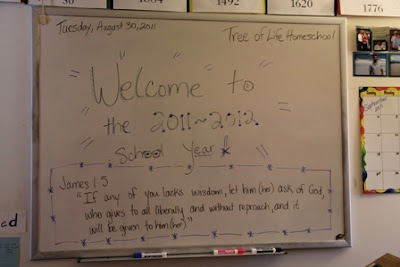 1492
1620
1776
Tuesday, August 30, 2011
Tree of Life Homeschool
"Welcome" to
the 2011~2012
School Year!
James 1:5
"If any of you lacks wisdom, let him (her) ask of God,
who gives to all liberally and without reproach, and it
will be given to him (her)."
Sunday Monday
September
cd